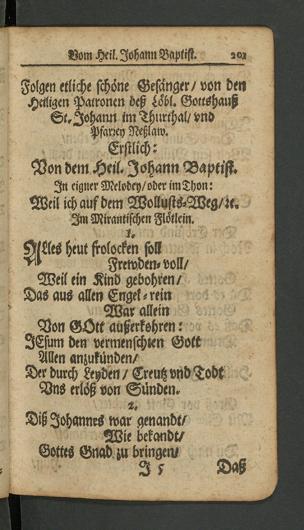 Vom Heil. Johann Baptist. 201
Folgen etliche schöne Gesänger/ von den
Heiligen Patronen deß Löbl. Gottshauß
St. Johann im Thurthal/ vnd
Pfarrey Neßlaw.
Erstlich:
Von dem Heil. Johann Baptist.
In eigner Melodey/ oder im Thon:
Weil ich auf dem Wollusts-Weg/ ꝛc.
Im Mirantischen Flötlein.
1.
Alles heut frolocken soll
Frewden-voll/
Weil ein Kind gebohren/
Das aus allen Engel-rein
War allein
Von GOtt außerkohren:
JEsum den vermenschten Gott
Allen anzukünden/
Der durch Leyden/ Creutz vnd Todt
Vns erlöß von Sünden.
2.
Diß Johannes war genandt/
Wie bekandt/
Gottes Gnad zu bringen/
J 5 Daß